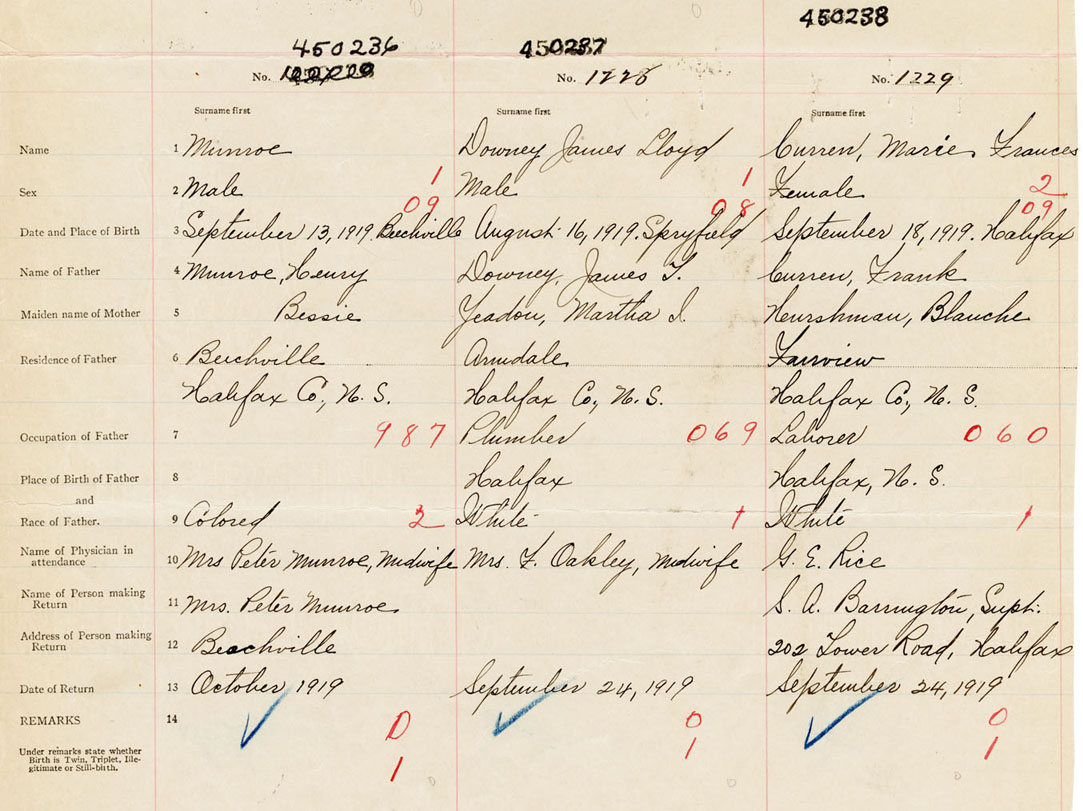 450236 450237 450238
No. No. 1228 No. 1229
Surname first Surname first Surname first
Name 1 Munroe Downey James Lloyd Curren, Marie Frances
Sex 2 Male 1 Male 1 Female 2
09 08 09
Date and Place of Birth 3 September 13, 1919. Beechville August 16, 1919. Spryfield September 18, 1919. Halifax
Name of Father 4 Munroe, Henry Downey, James T. Curren, Frank
Maiden name of Mother 5 Bessie Yeadon, Martha I. Hershman, Blanche
Residence of Father 6 Beechville Armdale Fairview
Halifax Co., N. S. Halifax Co., N. S. Halifax Co., N. S.
Occupation of Father 7 987 Plumber 069 Laborer 060
Place of Birth of Father 8 Halifax Halifax, N. S.
and
Race of Father. 9 Colored 2 White 1 White 1
Name of Physician in
attendance 10 Mrs Peter Munroe, Midwife Mrs. F. Oakley, Midwife G. E. Rice
Name of Person making
Return 11 Mrs. Peter Munroe S. A. Barrington, Supt.
Address of Person making
Return 12 Beechville 202 Lower Road, Halifax
Date of Return 13 October 1919 September 24, 1919 September 24, 1919
REMARKS 14 0 0 0
Under remarks state whether
Birth is Twin, Triplet, Ille-
gitimate or Still-birth. 1 1 1